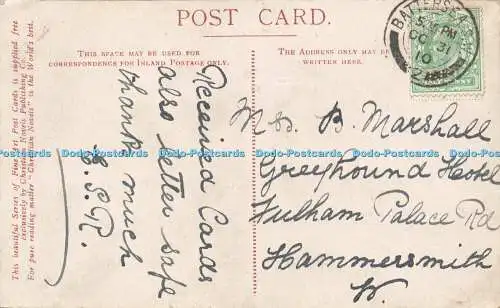 POST CARD.
THIS SPACE MAY BE USED FOR
CORRESPONDENCE FOR INLAND POSTAGE ONLY.
THE ADDRESS ONLY MAY BE
WRITTEN HERE.
This beautiful Series of Fine Art Post Cards is supplied free
exclusively by Christian Novels Publishing Co.
For pure reading matter "Christian Novels" is the World's best.
Received Cards
also letter safe
thank much
E.S.R.
BATTERSEA
PM
OC 31
10
Mrs B. Marshall
Greyhound Hotel
Fulham Palace Rd
Hammersmith
W.
Dodo-Postcards Dodo-Postcards Dodo-Postcards Dodo-Postcards Dodo-Postcards Dodo-Postcards